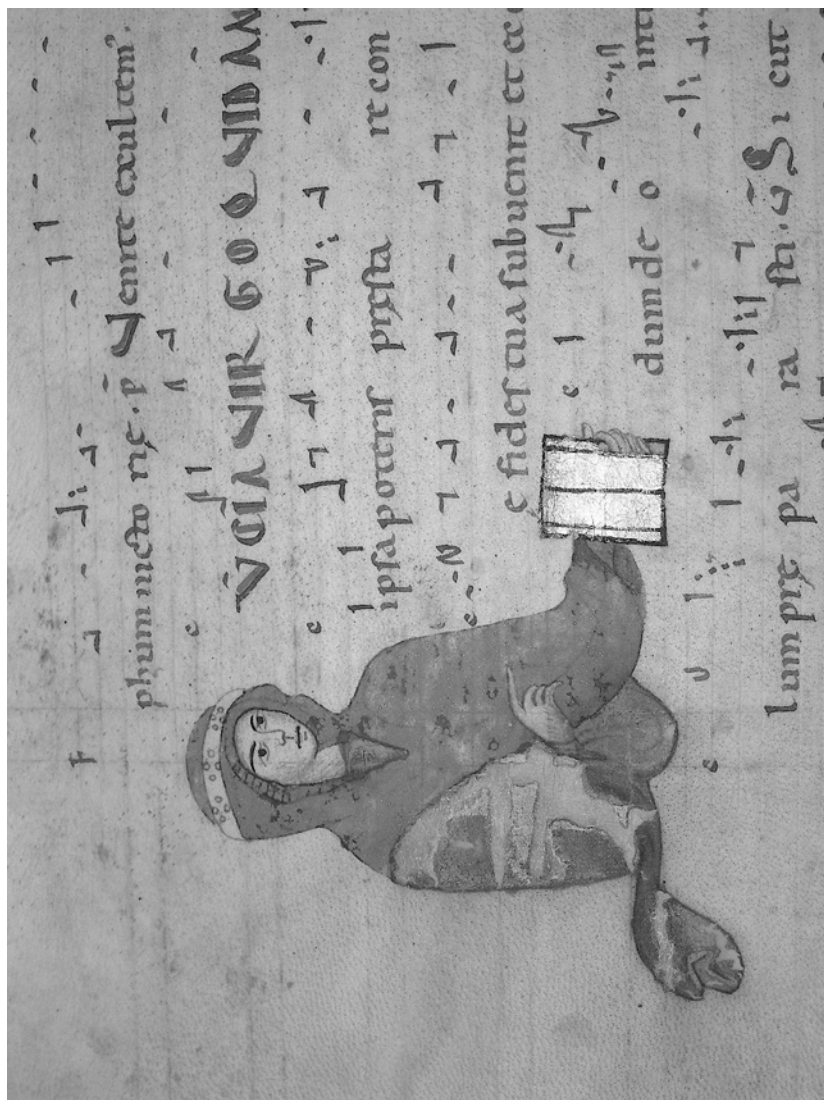 phum uicto riȩ. p̄ Uenite exultem'.
UCIA UIR GO QUID AM
ipsa poteris prȩsta re con
ȩ fides tua subuenit et ec
dum de o
lum prȩ pa ra sti. Si cut